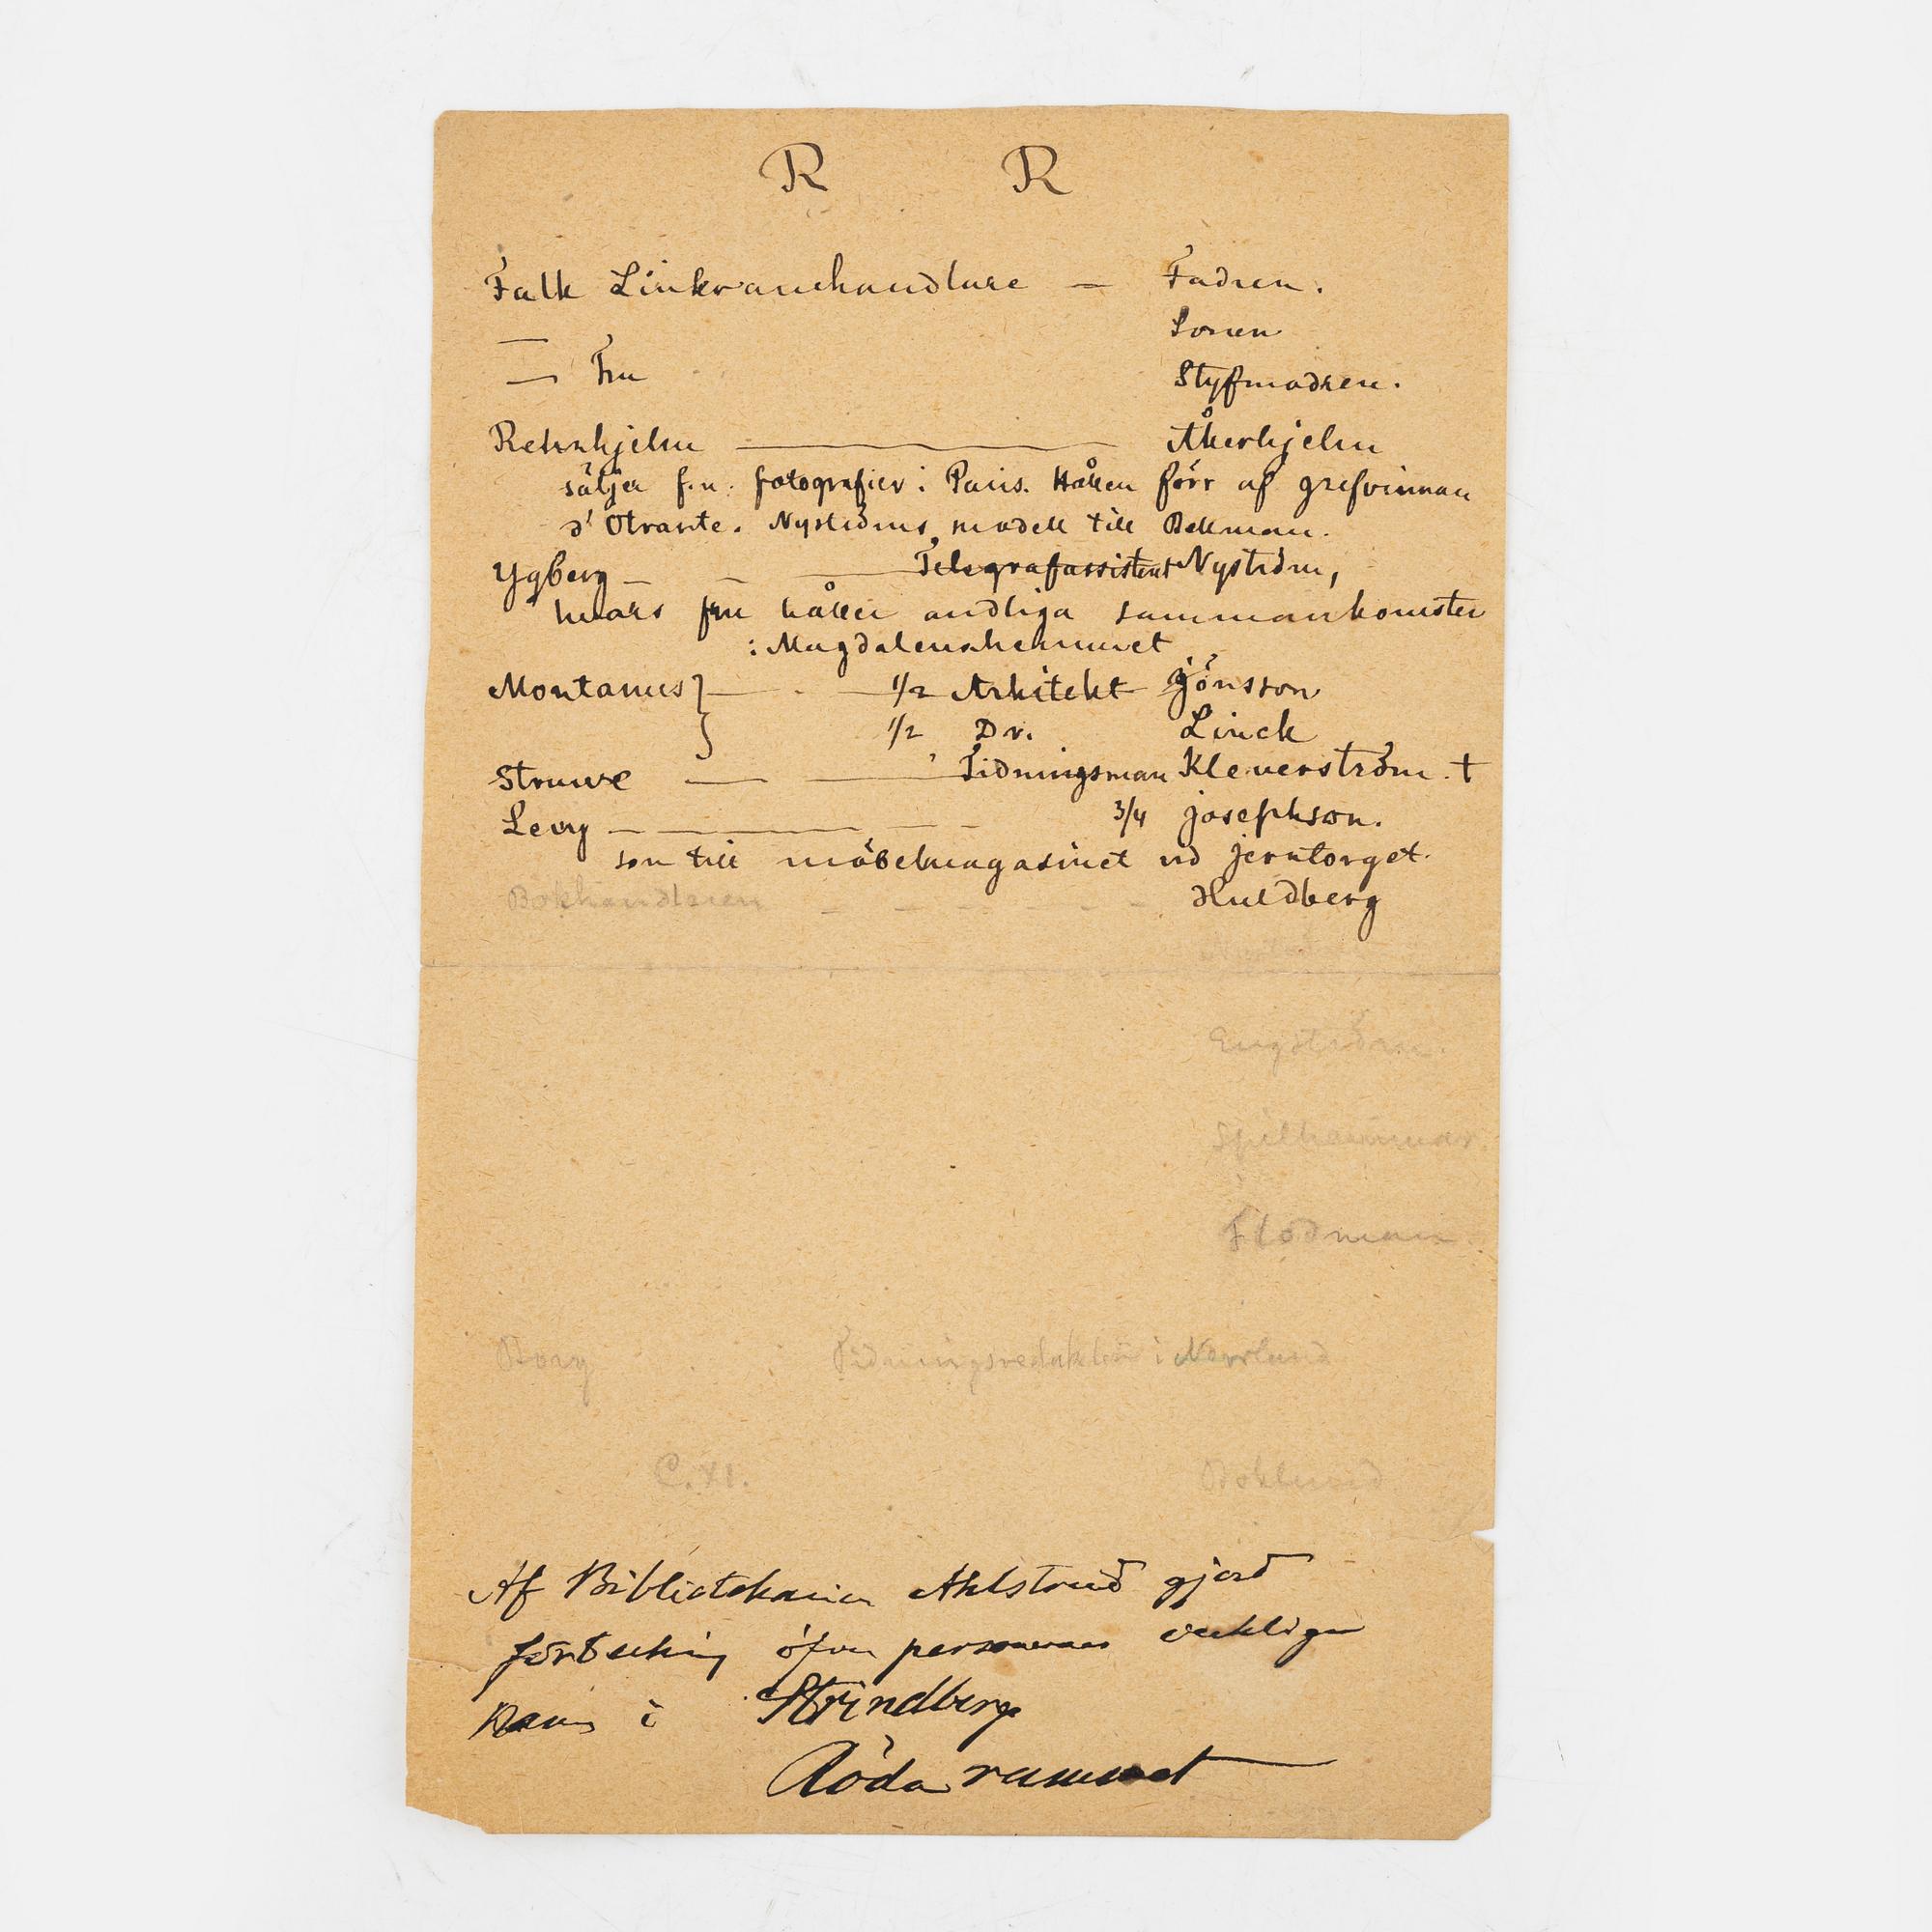 R R
Falk Linkramhandlare — Fadren.
— Sonen
— Fru Styfmodren.
Rehnhjelm — Åkerhjelm
säljer f.n. fotografier i Paris. Hållen förr af grefvinnan
d'Otrante. Nyströms modell till Bellman.
Ygberg — — Telegrafassistent Nyström,
hvars fru håller andliga sammankomster
i Magdalenahemmet
Montanus} — 1/2 Arkitekt Jönsson
1/2 Dr. Linck
Struwe — — Tidningsman Klemerström. †
Levy — — — 3/4 Josephson.
son till möbelmagasinet vid Jerntorget.
Bokhandlaren — — — — — Huldberg
Engström.
Spelhammar.
Flodman.
Borg Tidningsredaktör i Norrland
C. XI. Boklund
Af Bibliotekarien Ahlstrand gjord
förteckning öfver personernas verkliga
namn i Strindbergs
Röda rummet